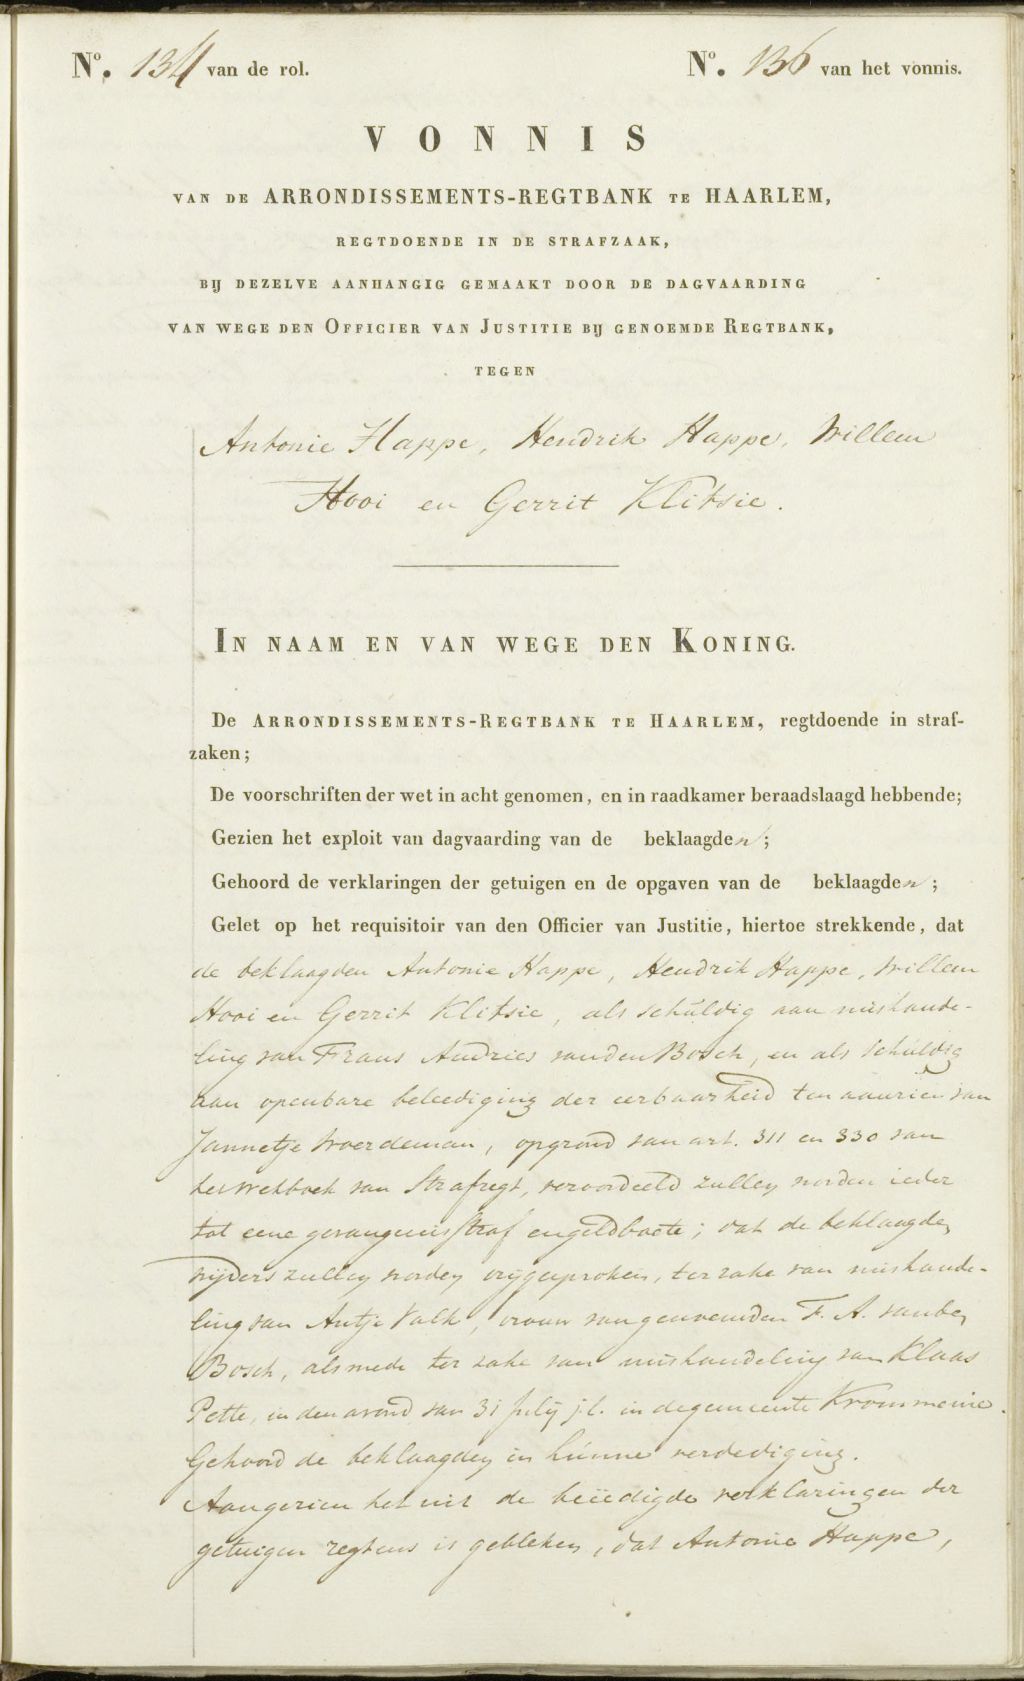 No. 134 van de rol.
No. 136 van het vonnis.
VONNIS
VAN DE ARRONDISSEMENTS-REGTBANK TE HAARLEM,
REGTDOENDE IN DE STRAFZAAK,
BIJ DEZELVE AANHANGIG GEMAAKT DOOR DE DAGVAARDING
VAN WEGE DEN OFFICIER VAN JUSTITIE BIJ GENOEMDE REGTBANK,
TEGEN
Antonie Happe, Hendrik Happe, Willem
Hooi en Gerrit Klitsie.
IN NAAM EN VAN WEGE DEN KONING.
De ARRONDISSEMENTS-REGTBANK TE HAARLEM, regtdoende in straf-
zaken;
De voorschriften der wet in acht genomen, en in raadkamer beraadslaagd hebbende;
Gezien het exploit van dagvaarding van de beklaagden;
Gehoord de verklaringen der getuigen en de opgaven van de beklaagden;
Gelet op het requisitoir van den Officier van Justitie, hiertoe strekkende, dat
de beklaagden Antonie Happe, Hendrik Happe, Willem
Hooi en Gerrit Klitsie, als schuldig aan mishande-
ling van Frans Andries van den Bosch, en als schuldig
aan openbare beleediging der eerbaarheid ten aanzien van
Jannetje Woerdeman, op grond van art. 311 en 330 van
het Wetboek van Strafregt, veroordeeld zullen worden ieder
tot eene gevangenisstraf en geldboete; dat de beklaagden
wijders zullen worden vrijgesproken, ter zake van mishande-
ling van Antje Valk, vrouw van genoemden F. A. van den
Bosch, alsmede ter zake van mishandeling van Klaas
Pette, in den avond van 31 Julij j.l. in de gemeente Krommenie.
Gehoord de beklaagden in hunne verdediging.
Aangezien het uit de beëedigde verklaringen der
getuigen regtens is gebleken, dat Antonie Happe,